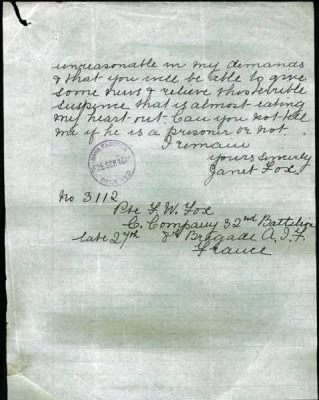 unreasonable in my demands
& that you will be able to give
some news & relieve this terrible
suspense that is almost eating
my heart out. Can you not tell
me if he is a prisoner or not.
I remain
yours sincerely
Janet Fox.
RECEIVED
No 3112
Pte F. W. Fox
C. Company 32nd Battalion
late 27th 8th Bragade A. I. F.
France